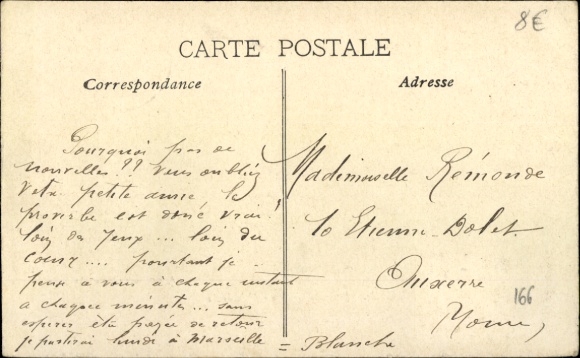 8€
CARTE POSTALE
Correspondance
Adresse
Pourquoi pas de
nouvelles ?? Vous oubliez
votre petite amie le
proverbe est donc vrai !
loin des yeux ... loin du
coeur .... pourtant je
pense à vous à chaque instant
a chaque minute ... sans
espérer être payée de retour
je partirai lundi à Marseille = Blanche
Mademoiselle Rémonde
10 Etienne-Dolet
Auxerre
166
Yonne